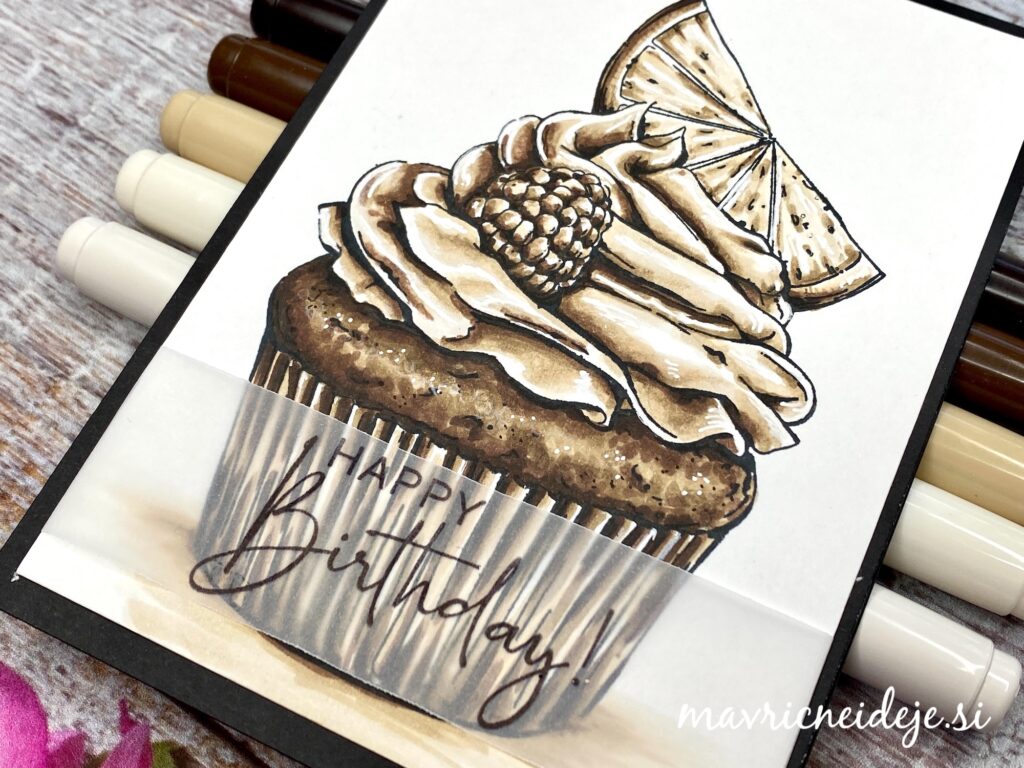 HAPPY
Birthday!
mavricneideje.si